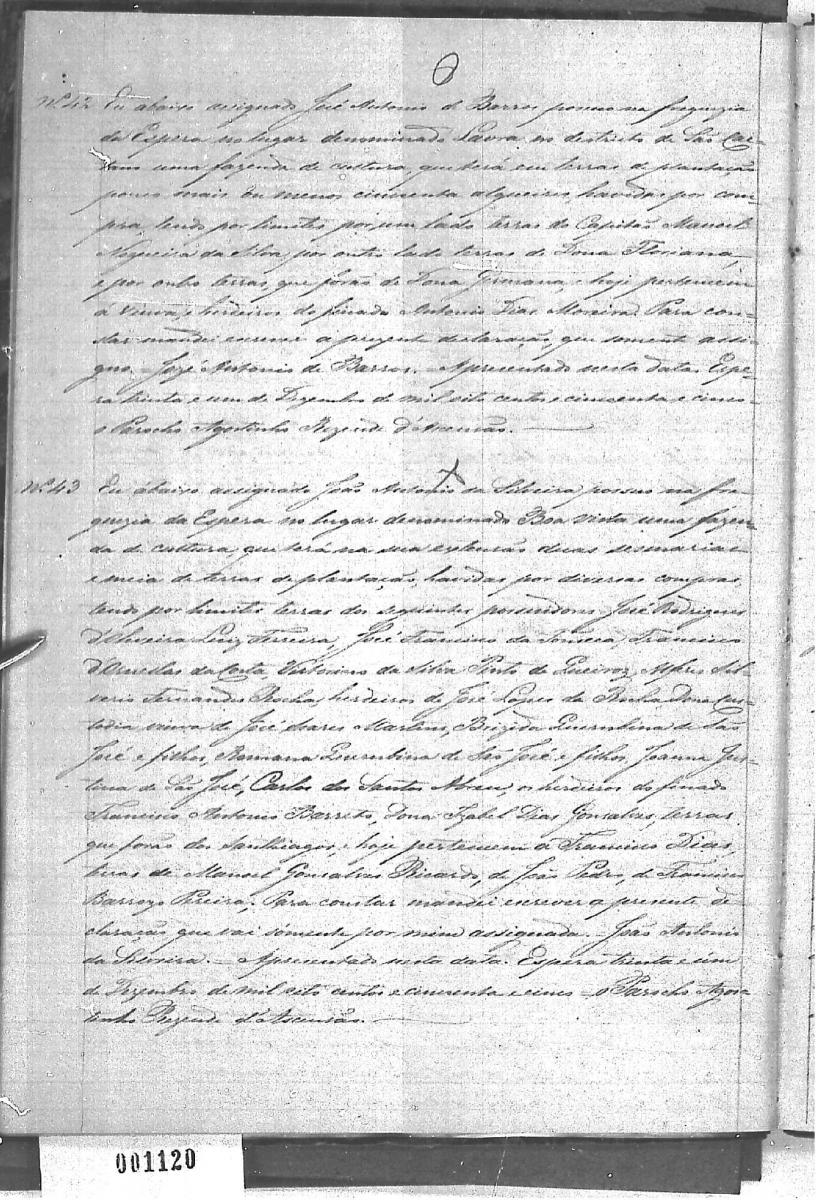 6
Nº 42 Eu abaixo assignado José Antonio de Barros possuo na freguezia
da Espera no lugar denominado Lavra no destricto de São Cae-
tano uma fazenda de cultura, que terá em terras de plantação
pouco mais ou menos cincoenta alqueires, havidas por com-
pra, tendo por limites por um lado terras do Capitão Manoel
Nogueira da Silva, por outro lado terras de Dona Floriana,
e por outro terras, que forão de Dona Germana, e hoje pertencem
á viuva, e herdeiros do finado Antonio Dias Moreira. Para cons-
tar mandei escrever a presente declaração, que somente assi-
gno. José Antonio de Barros. Apresentado nesta data. Espe-
ra trinta e um de Dezembro de mil oito centos e cincoenta e cinco
o Parocho Agostinho Rezende d'Ascensão.
Nº 43 Eu abaixo assignado João Antonio da Silveira possuo na fre-
guezia da Espera no lugar denominado Boa vista uma fazen-
da de cultura, que terá na sua extensão duas sesmarias
e meia de terras de plantação, havidas por diversas compras,
tendo por limites terras dos seguintes possuidores José Rodrigues
d'Oliveira Luiz Ferreira, José Francisco da Fonseca, Francisco
d'Ornellas da Costa, Victorino da Silva Pinto de Queiroz, Alferes Sil-
verio Fernandes Rocha, herdeiros de José Lopes da Rocha Dona Cus-
todia viuva de José Soares Martins, Brigida Querubina de São
José e filhos, Romana Querubina de São José e filhos, Joanna Jus-
tina de São José, Carlos dos Santos Abreu, os herdeiros do finado
Francisco Antonio Barreto, Dona Izabel Dias Gonsalves, terras
que forão dos Santhiagos, e hoje pertencem a Francisco Dias,
terras de Manoel Gonsalves Ricardo, de João Pedro, de Francisco
Barrozo Pereira. Para constar mandei escrever a presente de-
claração que vai sómente por mim assignada. João Antonio
da Silveira. Apresentado nesta data. Espera trinta e um
de Dezembro de mil oito centos e cincoenta e cinco o Parocho Agos-
tinho Rezende d'Ascensão.
001120